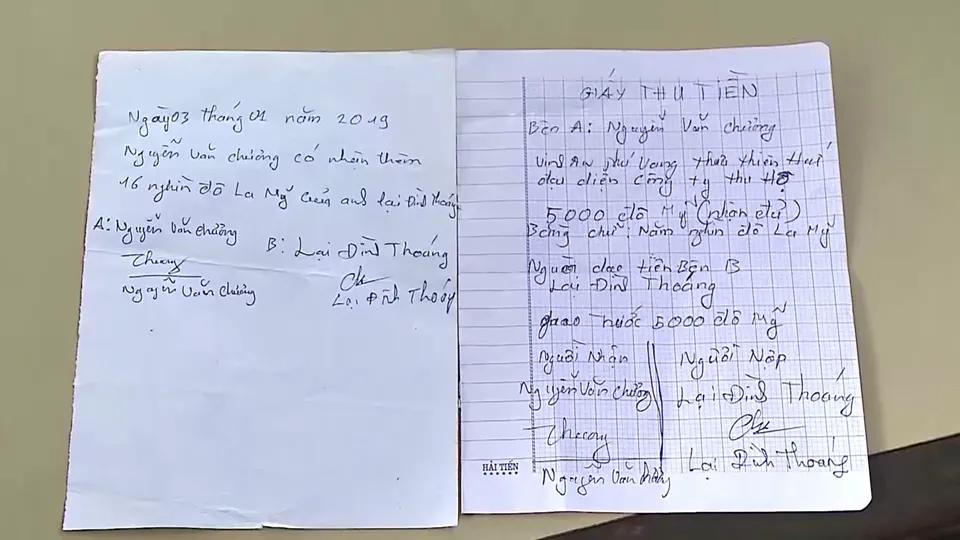 Ngày 03 tháng 01 năm 2019
Nguyễn Văn chương có nhận thêm
16 nghìn đô La Mỹ của anh Lại Đình Thoáng
A: Nguyễn Văn chương
Chương
Nguyễn Văn chương
B: Lại Đình Thoáng
Lại Đình Thoáng
GIẤY THU TIỀN
Bên A: Nguyễn Văn chương
Vinh An phú Vang thừa thiên Huế
đại diện công ty thu Hộ
5000 đô Mỹ (nhận đủ)
Bằng chữ: Năm nghìn đô La Mỹ
Người tiền Bên B
Lại Đình Thoáng
giao trước 5000 đô Mỹ
Người Nhận
Nguyễn Văn Chương
Chương
Nguyễn Văn chương
Người Nộp
Lại Đình Thoáng
Lại Đình Thoáng
HẢI TIẾN